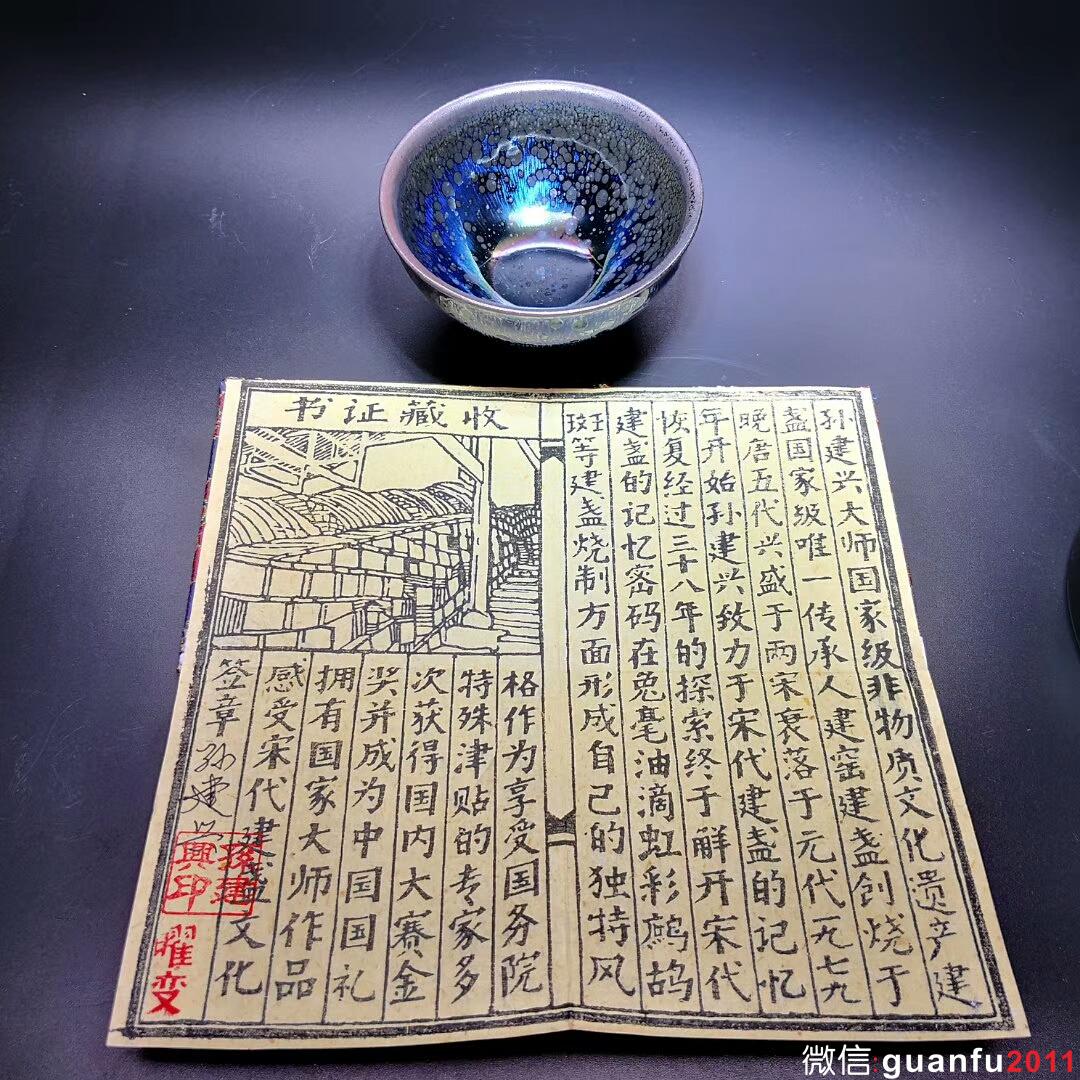 孙建兴大师国家级非物质文化遗产建
盏国家级唯一传承人建窑建盏创烧于
晚唐五代兴盛于两宋衰落于元代一九七九
年开始孙建兴致力于宋代建盏的记忆
恢复经过三十八年的探索终于解开宋代
建盏的记忆密码在兔毫油滴虹彩鹧鸪
斑等建盏烧制方面形成自己的独特风
收藏证书
格作为享受国务院
特殊津贴的专家多
次获得国内大赛金
奖并成为中国国礼
拥有国家大师作品
感受宋代建盏文化
签章 孙建兴
孫建興印
曜变
微信:guanfu2011